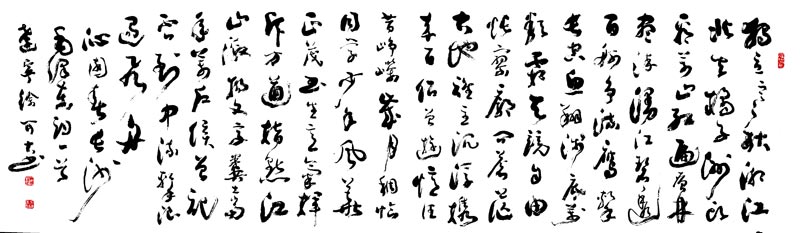 独立寒秋湘江
北去橘子洲头
看万山红遍层林
尽染漫江碧透
百舸争流鹰击
长空鱼翔浅底万
类霜天竞自由
怅寥廓问苍茫
大地谁主沉浮携
来百侣曾游忆往
昔峥嵘岁月稠恰
同学少年风华
正茂书生意气挥
斥方遒指点江
山激扬文字粪土当
年万户侯曾记
否到中流击水浪
遏飞舟
沁园春长沙
毛泽东词一首